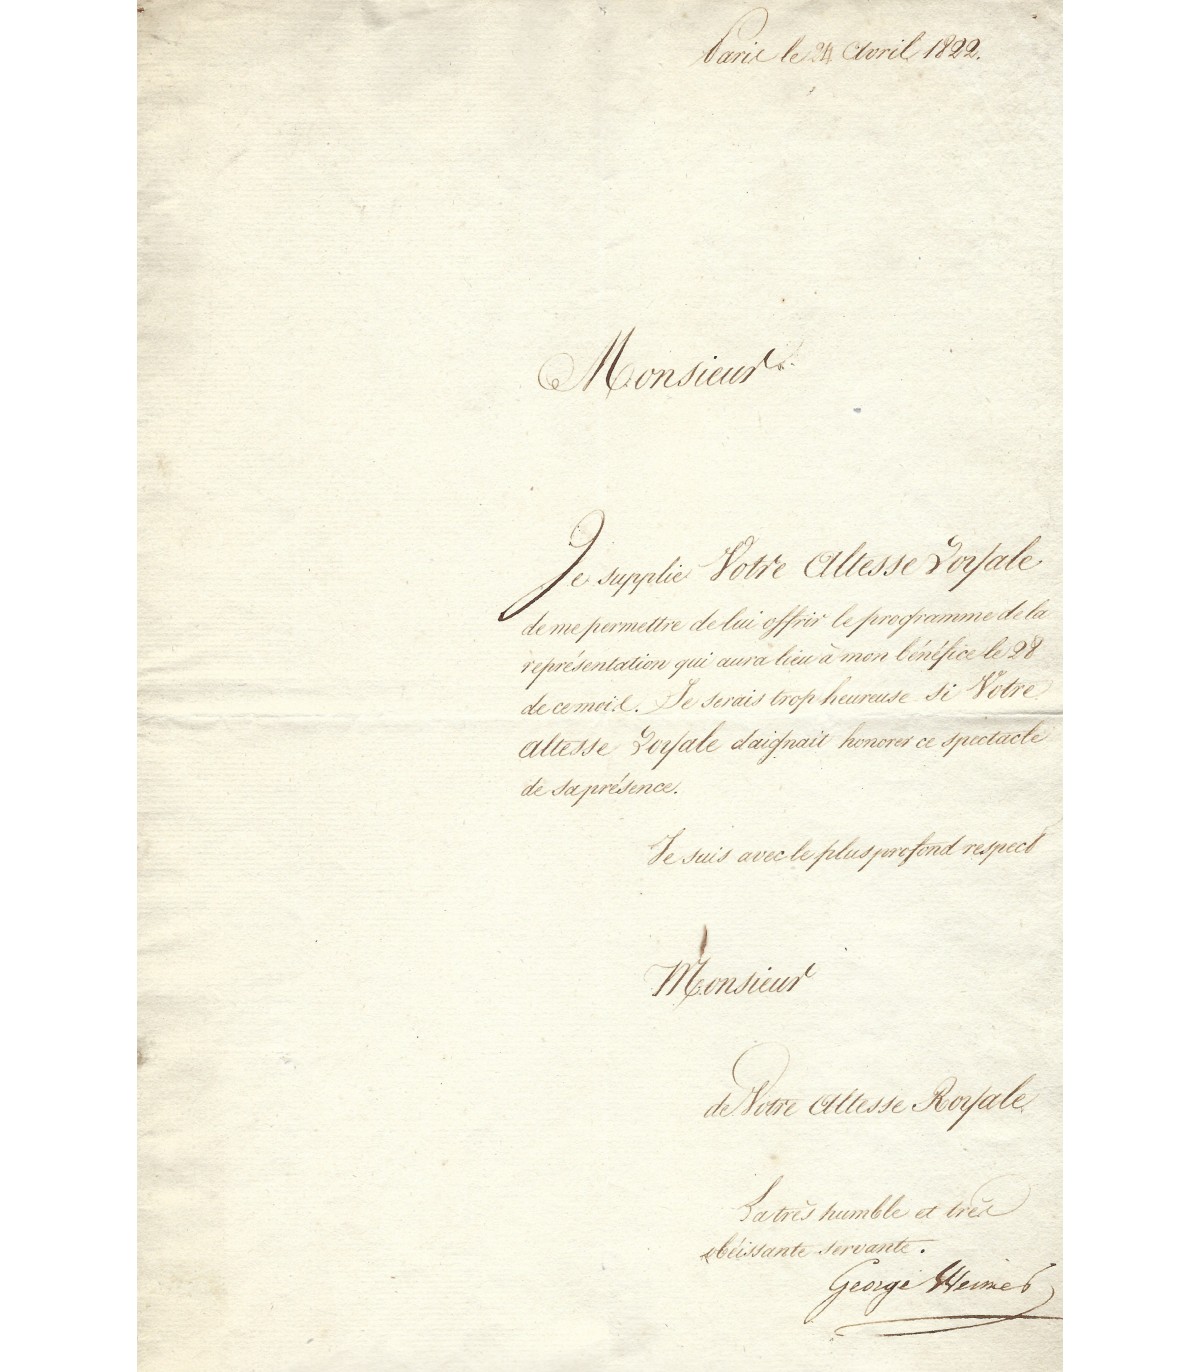 Paris le 24 Avril 1822.
Monsieur
Je supplie Votre Altesse Royale
de me permettre de lui offrir le programme de la
représentation qui aura lieu à mon bénéfice le 28
de ce mois. Je serais trop heureuse si Votre
Altesse Royale daignait honorer ce spectacle
de sa présence.
Je suis avec le plus profond respect
Monsieur
de Votre Altesse Royale
La très humble et très
obéissante servante.
George Weimer